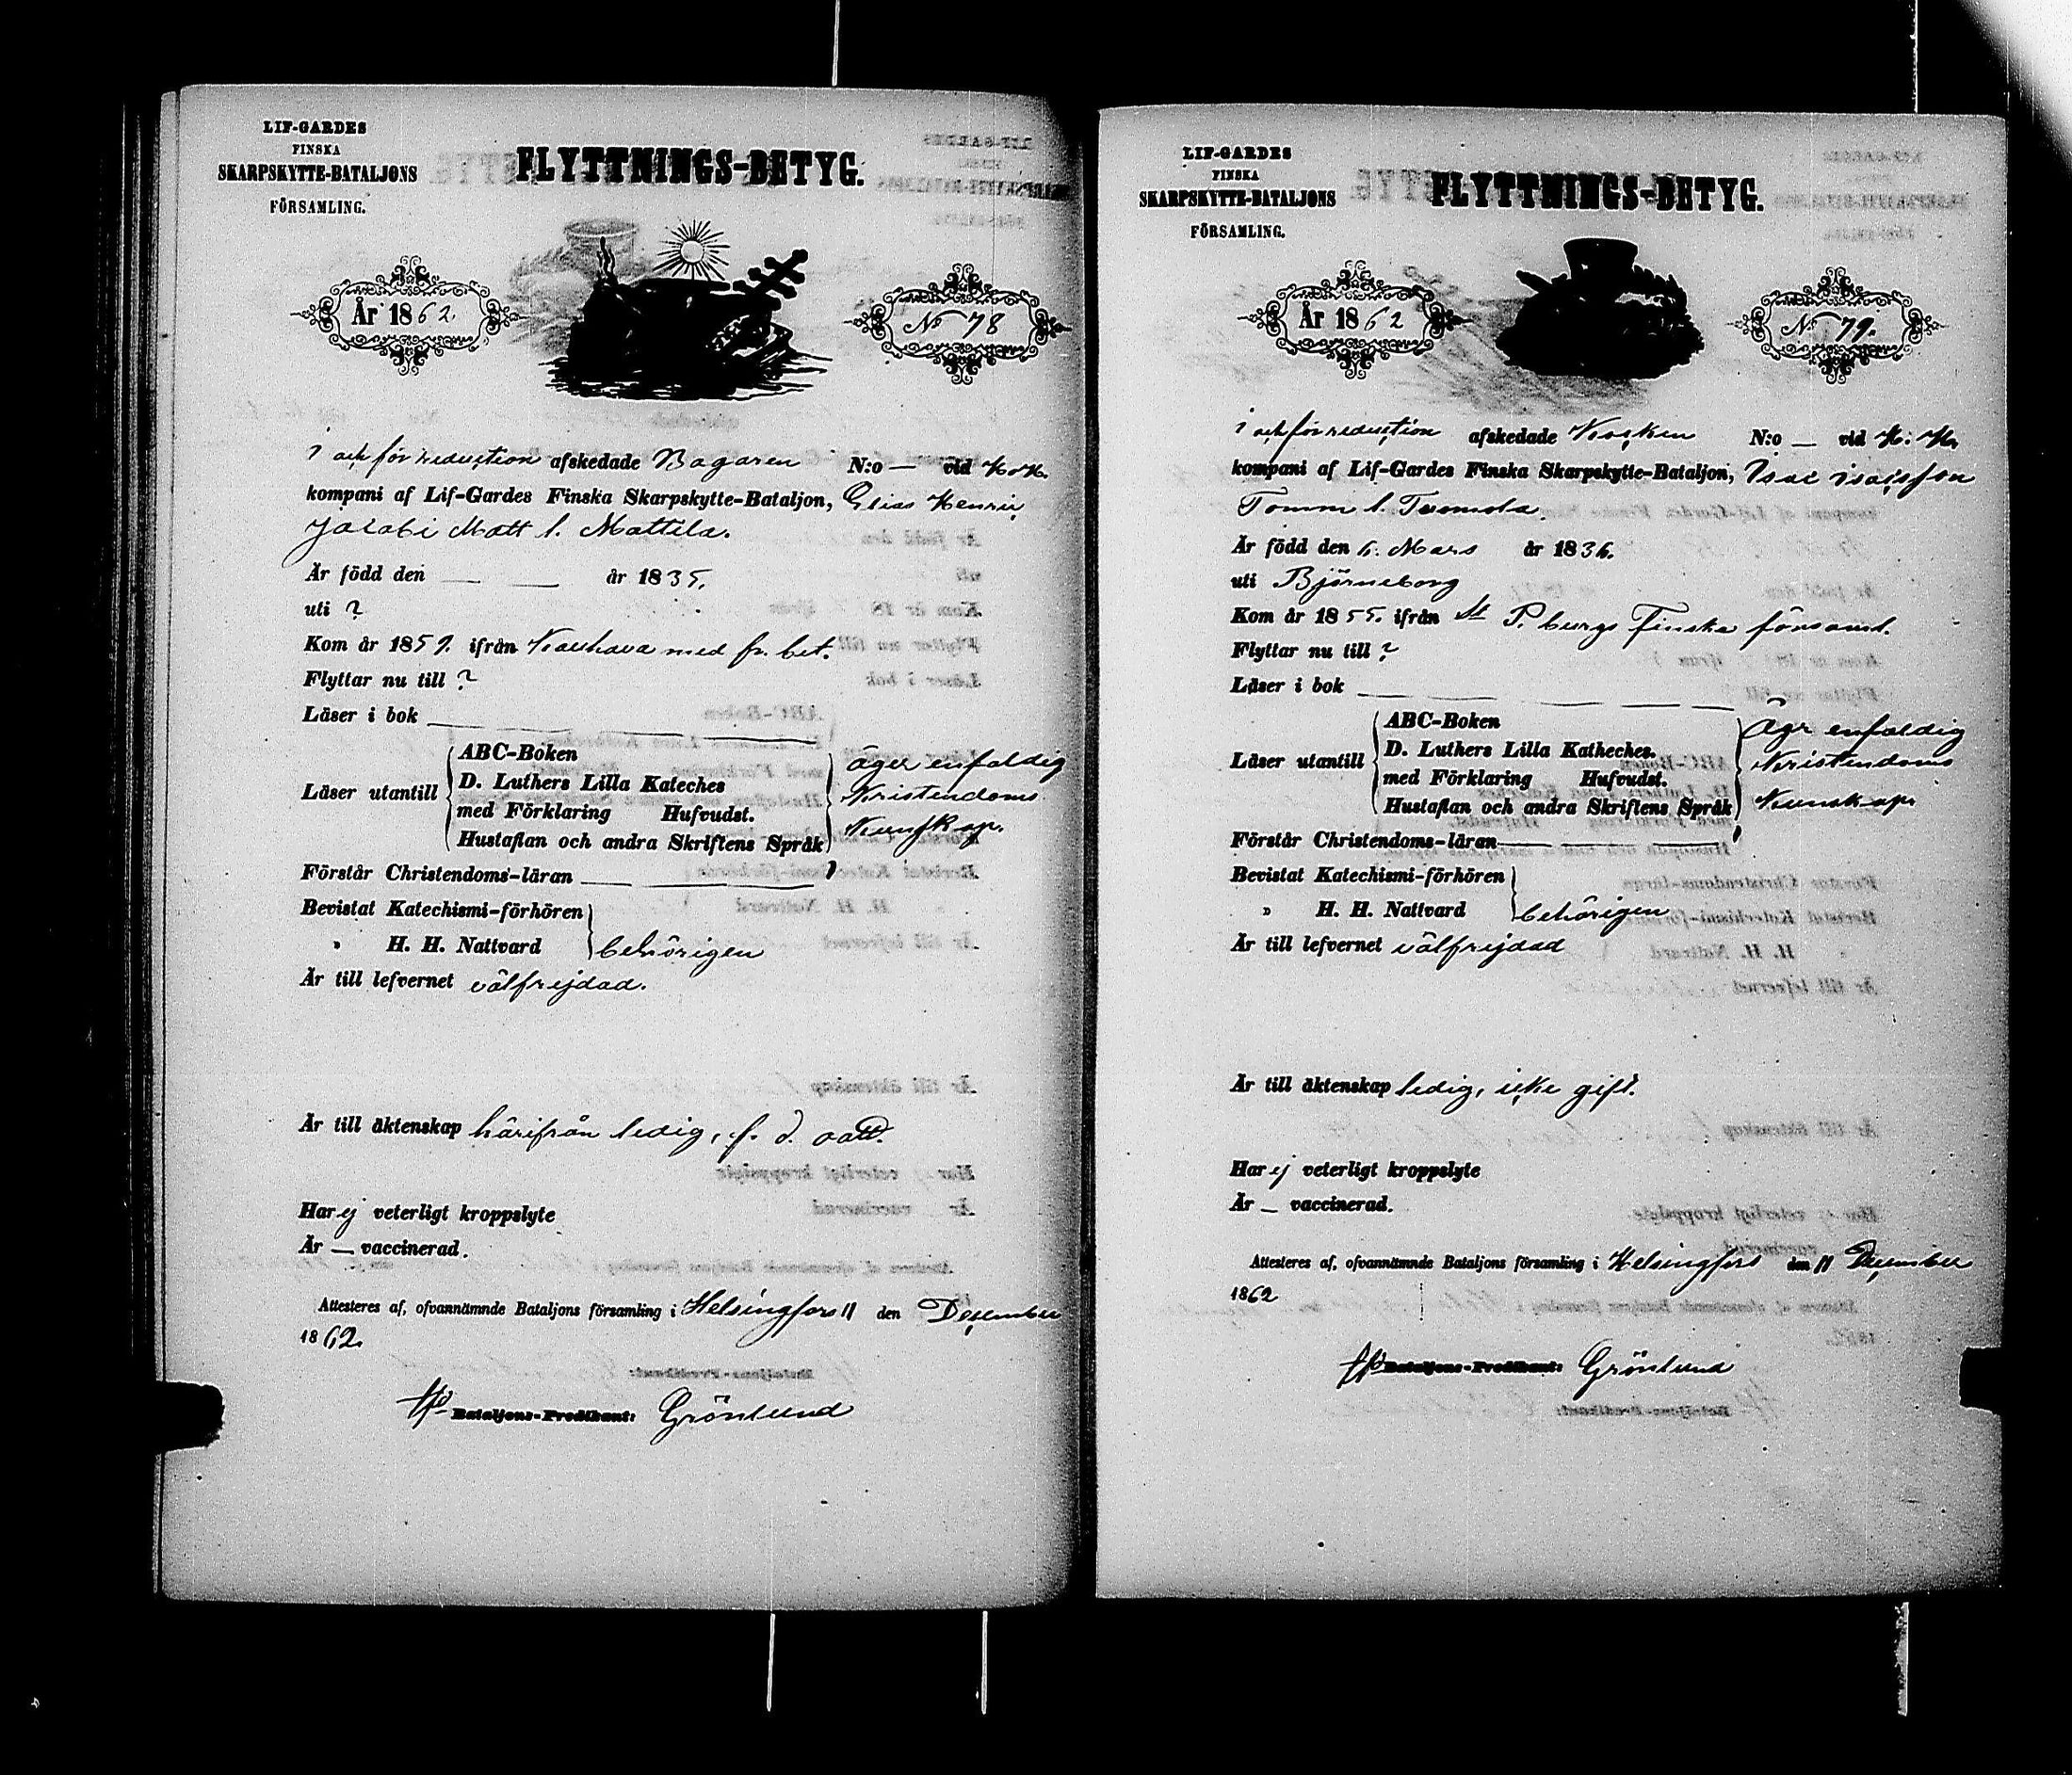 LIF-GARDES
FINSKA
SKARPSKYTTE-BATALJONS
FÖRSAMLING.
FLYTTNINGS-BETYG.
År 1862.
No 78
i och för reduction afskedade Bagaren N:o — vid K. K.
kompani af Lif-Gardes Finska Skarpskytte-Bataljon, Elias Henric
Jacobi Matt l. Mattila.
Är född den — — år 1835.
uti ?
Kom år 1859. ifrån Kauhava med fr. bet.
Flyttar nu till ?
Läser i bok
Läser utantill
ABC-Boken
D. Luthers Lilla Kateches
med Förklaring Hufvudst.
Hustaflan och andra Skriftens Språk
äger enfaldig
Kristendoms
Kunskap.
Förstår Christendoms-läran
Bevistat Katechismi-förhören
» H. H. Nattvard
behörigen
Är till lefvernet välfrejdad.
Är till äktenskap härifrån ledig, f. d.
Har ej veterligt kroppslyte
Är — vaccinerad.
Attesteres af, ofvannämnde Bataljons församling i Helsingfors 11 den December
1862.
Bataljons-Predikant: Grönlund
LIF-GARDES
FINSKA
SKARPSKYTTE-BATALJONS
FÖRSAMLING.
FLYTTNINGS-BETYG.
År 1862
No 79.
i och för reduction afskedade Kocken N:o — vid K. K.
kompani af Lif-Gardes Finska Skarpskytte-Bataljon, Isac Isacsson
Tomm l. Tuomola.
Är född den 6. Mars år 1836.
uti Björneborg
Kom år 1855. ifrån St P.burgs Finska församl.
Flyttar nu till ?
Läser i bok
Läser utantill
ABC-Boken
D. Luthers Lilla Katheches.
med Förklaring Hufvudst.
Hustaflan och andra Skriftens Språk
Äger enfaldig
Kristendoms
Kunskap
Förstår Christendoms-läran
Bevistat Katechismi-förhören
» H. H. Nattvard
behörigen
Är till lefvernet välfrejdad
Är till äktenskap ledig, icke gift.
Har ej veterligt kroppslyte
Är — vaccinerad.
Attesteres af, ofvannämnde Bataljons församling i Helsingfors den 11 December
1862
Bataljons-Predikant: Grönlund